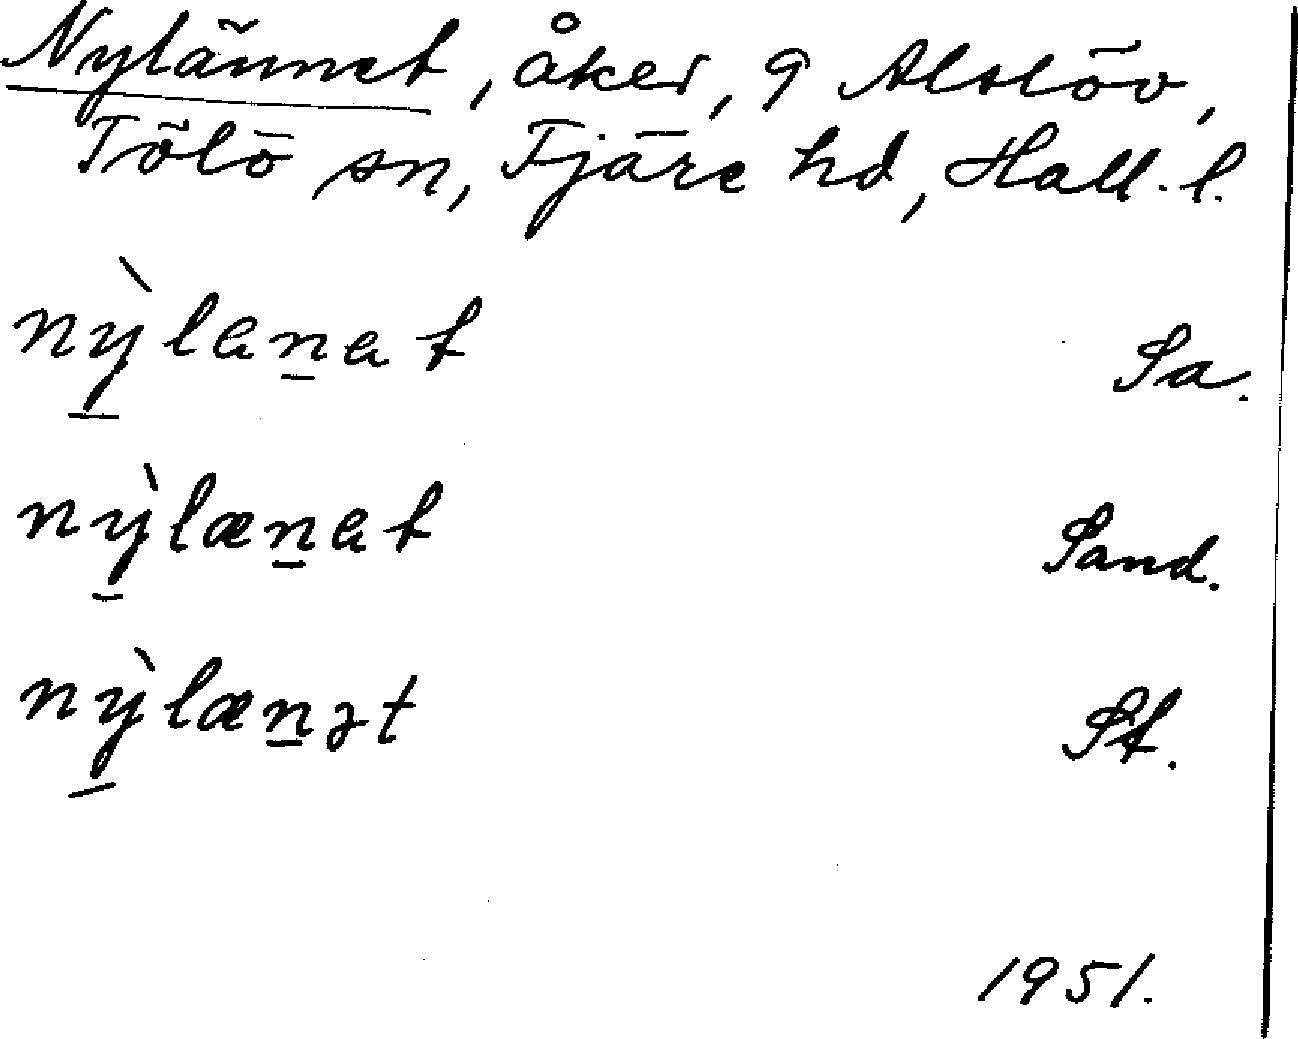 Nylännet, åker, 9 Alslöv,
Tölö sn, Fjäre hd, Hall. l.
nỳlanat Sa.
nỳlænat Sand.
nỳlænət St.
1951.